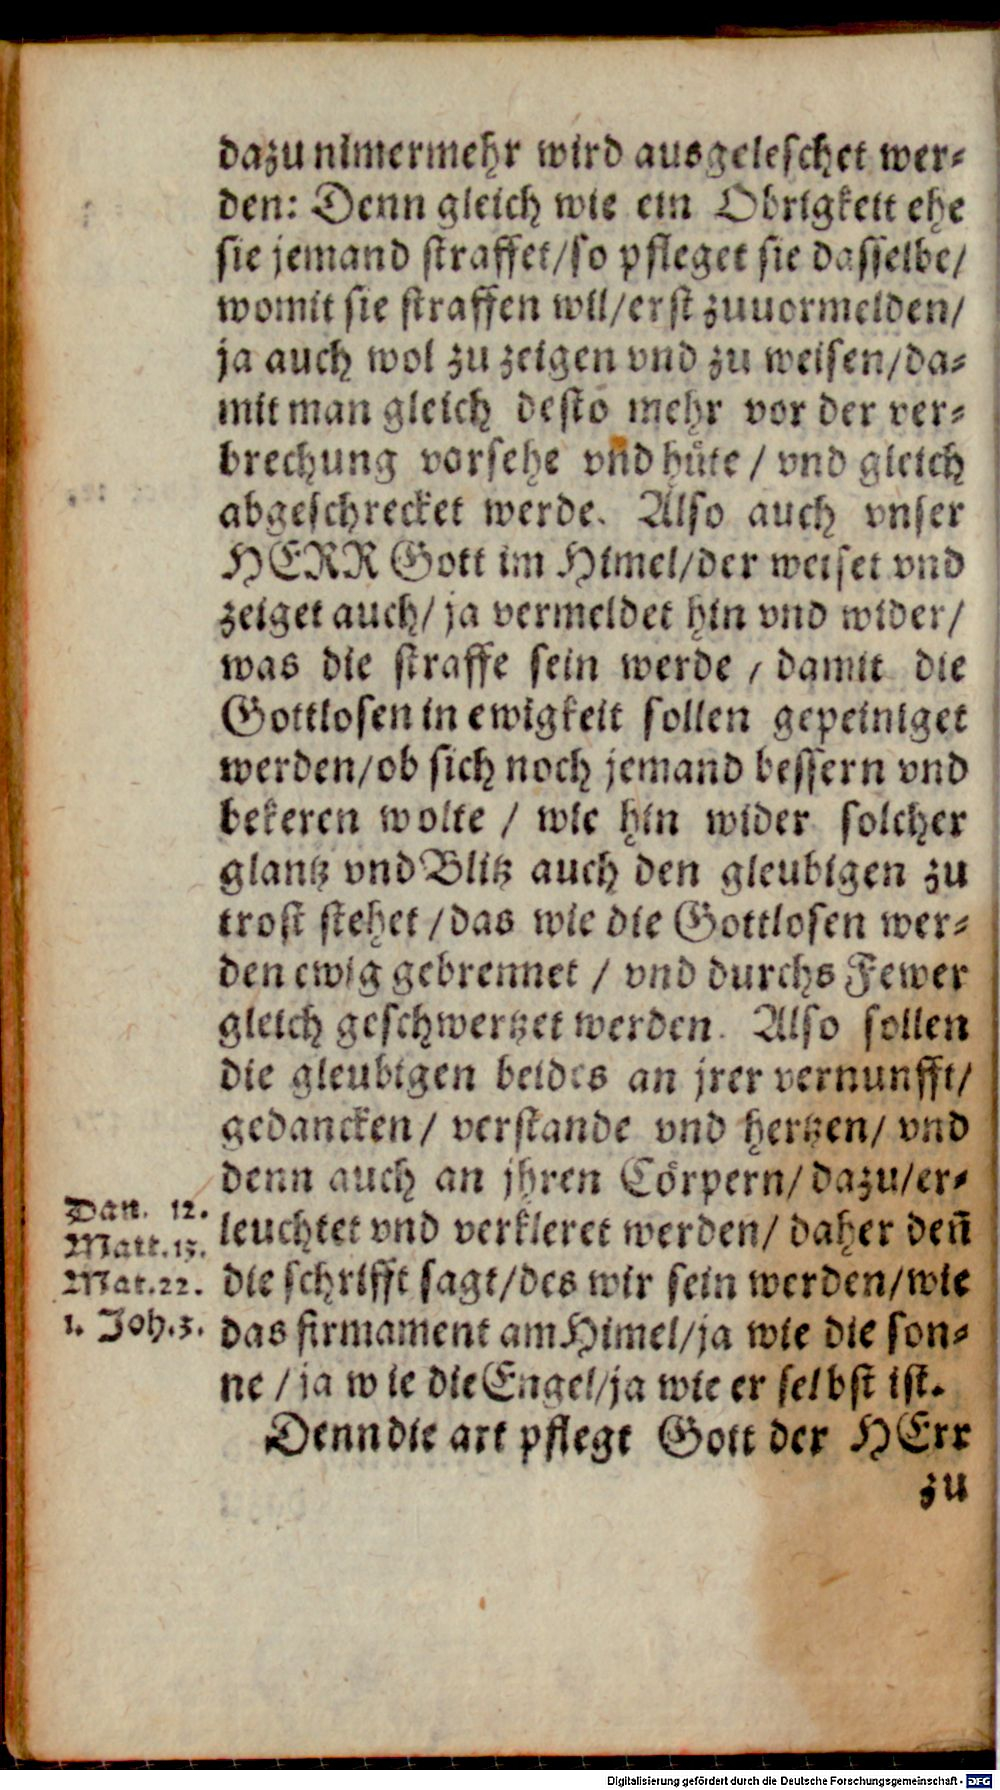 dazu nimermehr wird ausgeleschet wer⸗
den: Denn gleich wie ein Obrigkeit ehe
sie jemand straffet/so pfleget sie dasselbe/
womit sie straffen wil/erst zuuormelden/
ja auch wol zu zeigen vnd zu weisen/da⸗
mit man gleich desto mehr vor der ver⸗
brechung vorsehe vñd hüte / vnd gleich
abgeschrecket werde. Also auch vnser
HERR Gott im Himel/der weiset vnd
zeiget auch/ ja vermeldet hin vnd wider/
was die straffe sein werde / damit die
Gottlosen in ewigkeit sollen gepeiniget
werden/ob sich noch jemand bessern vnd
bekeren wolte / wie hin wider solcher
glantz vnd Blitz auch den gleubigen zu
trost stehet /das wie die Gottlosen wer⸗
den ewig gebrennet / vnd durchs Fewer
gleich geschwertzet werden. Also sollen
die gleubigen beides an jrer vernunfft/
gedancken / verstande vnd hertzen/ vnd
denn auch an jhren Cörpern/ dazu/er⸗
leuchtet vnd verkleret werden/ daher deñ
die schrifft sagt/des wir sein werden/wie
das firmament am Himel/ja wie die son⸗
ne / ja wie die Engel/ja wie er selbst ist.
Denn die art pflegt Gott der HErr
zu
Dan. 12.
Matt. 13.
Mat. 22.
1. Joh. 3.
Digitalisierung gefördert durch die Deutsche Forschungsgemeinschaft - DFG